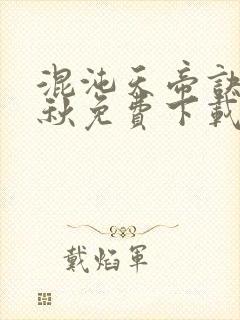 混沌天帝訣
秋免費下載
戴焰軍